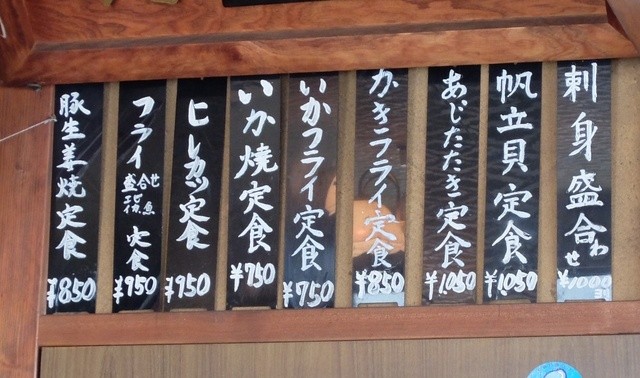 刺身盛合わせ
¥1000ヨリ
帆立貝定食
¥1050
あじたたき定食
¥1050
かきフライ定食
¥850
いかフライ定食
¥750
いか焼定食
¥750
ヒレカツ定食
¥950
フライ盛合せ定食
¥950
豚生姜焼定食
¥850